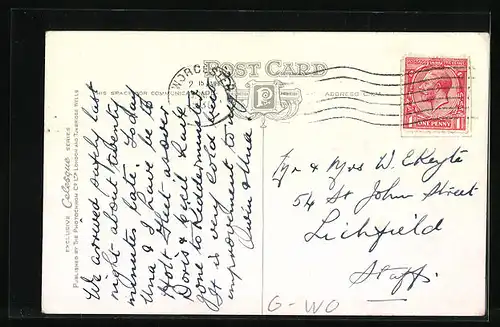 POST CARD
THIS SPACE FOR COMMUNICATION
ADDRESS ONLY
WORCESTER
EXCLUSIVE Celesque SERIES
PUBLISHED BY THE PHOTOCHROM CO LTD LONDON AND TUNBRIDGE WELLS
ONE PENNY
We arrived safely last
night about twenty
minutes late. Today
Una & I have be to
Holt Fleet as over
Doris & Cecil have
gone to Kidderminster
It is very cold no
improvement to night
& Una
Mr & Mrs W. E. Keyte
54 St John Street
Lichfield
Staffs.
G-WO